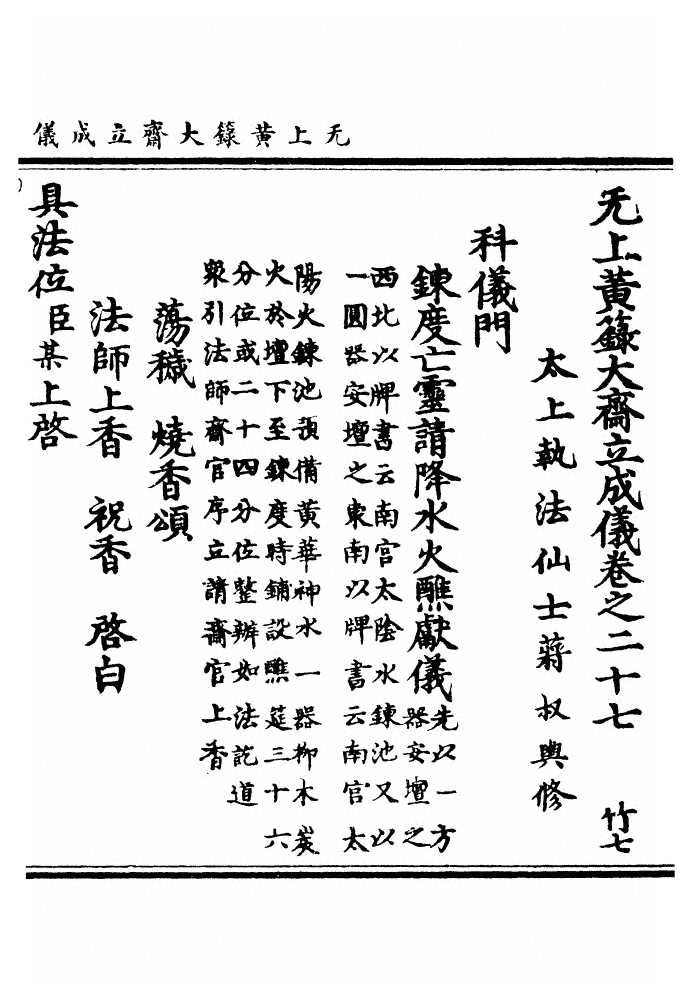 无上黃籙大齋立成儀
无上黃籙大齋立成儀卷之二十七　竹七
太上執法仙士蔣叔輿修
科儀門
鍊度亡靈請降水火醮獻儀
先以一方
器安壇之
西北以牌書云南宮太陰水鍊池又以
一圓器安壇之東南以牌書云南宮太
陽火鍊池預備黃華神水一器柳木炭
火於壇下至鍊度時鋪設醮筵三十六
分位或二十四分位整辦如法訖道
衆引法師齋官序立請齋官上香
蕩穢　燒香頌
法師上香　祝香　啓白
具法位臣某上啓